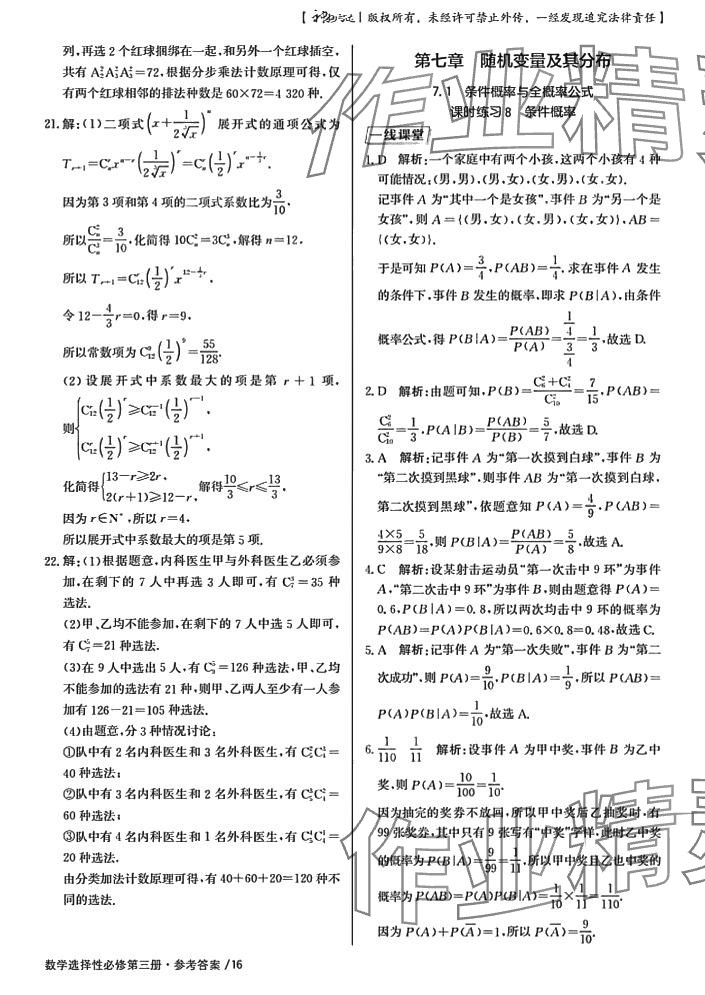 版权所有,未经许可禁止外传,一经发现追究法律责任】
列,再选 2 个红球捆绑在一起,和另外一个红球插空,
共有 A₃²A₂²A₄³=72,根据分步乘法计数原理可得,仅
有两个红球相邻的排法种数是 60×72=4 320 种.
21. 解:(1)二项式(x+1/(2∛x))ⁿ 展开式的通项公式为
因为第 3 项和第 4 项的二项式系数比为 3/10,
所以 Cₙ²/Cₙ³=3/10,化简得 10Cₙ²=3Cₙ³,解得 n=12,
所以 Tᵣ₊₁=C₁₂ʳ(1/2)ʳx^(12-(4/3)r),
令 12-(4/3)r=0,得 r=9,
所以常数项为 C₁₂⁹(1/2)⁹=55/128.
(2)设展开式中系数最大的项是第 r+1 项,
则{C₁₂ʳ(1/2)ʳ≥C₁₂ʳ⁻¹(1/2)ʳ⁻¹,
C₁₂ʳ(1/2)ʳ≥C₁₂ʳ⁺¹(1/2)ʳ⁺¹,
化简得{13-r≥2r, 2(r+1)≥12-r, 解得 10/3≤r≤13/3,
因为 r∈N*,所以 r=4,
所以展开式中系数最大的项是第 5 项.
22. 解:(1)根据题意,内科医生甲与外科医生乙必须参
加,在剩下的 7 人中再选 3 人即可,有 C₇³=35 种
选法.
(2)甲、乙均不能参加,在剩下的 7 人中选 5 人即可,
有 C₇⁵=21 种选法.
(3)在 9 人中选出 5 人,有 C₉⁵=126 种选法,甲、乙均
不能参加的选法有 21 种,则甲、乙两人至少有一人参
加有 126-21=105 种选法.
(4)由题意,分 3 种情况讨论:
①队中有 2 名内科医生和 3 名外科医生,有 C₅²C₄³=
40 种选法;
②队中有 3 名内科医生和 2 名外科医生,有 C₅³C₄²=
60 种选法;
③队中有 4 名内科医生和 1 名外科医生,有 C₅⁴C₄¹=
20 种选法.
由分类加法计数原理可得,有 40+60+20=120 种不
同的选法.
第七章 随机变量及其分布
7.1 条件概率与全概率公式
课时练习 8 条件概率
一线课堂
1. D 解析:一个家庭中有两个小孩,这两个小孩有 4 种
可能情况:(男,男),(男,女),(女,男),(女,女).
记事件 A 为“其中一个是女孩”,事件 B 为“另一个是
女孩”,则 A={(男,女),(女,男),(女,女)},AB=
{(女,女)}.
于是可知 P(A)=3/4,P(AB)=1/4.求在事件 A 发生
的条件下,事件 B 发生的概率,即求 P(B|A),由条件
概率公式,得 P(B|A)=P(AB)/P(A)=(1/4)/(3/4)=1/3,故选 D.
2. D 解析:由题可知,P(B)=(C₆²+C₄²)/C₁₀²=7/15,P(AB)=
C₆²/C₁₀²=1/3,P(A|B)=P(AB)/P(B)=5/7,故选 D.
3. A 解析:记事件 A 为“第一次摸到白球”,事件 B 为
“第二次摸到黑球”,则事件 AB 为“第一次摸到白球,
第二次摸到黑球”,依题意知 P(A)=4/9,P(AB)=
(4×5)/(9×8)=5/18,则 P(B|A)=P(AB)/P(A)=5/8,故选 A.
4. C 解析:设某射击运动员“第一次击中 9 环”为事件
A,“第二次击中 9 环”为事件 B,则由题意得 P(A)=
0.6,P(B|A)=0.8,所以两次均击中 9 环的概率为
P(AB)=P(A)P(B|A)=0.6×0.8=0.48,故选 C.
5. A 解析:记事件 A 为“第一次失败”,事件 B 为“第二
次成功”,则 P(A)=9/10,P(B|A)=1/9,所以 P(AB)=
P(A)P(B|A)=1/10,故选 A.
6. 1/110 1/11 解析:设事件 A 为甲中奖,事件 B 为乙中
奖,则 P(A)=10/100=1/10.
因为抽完的奖券不放回,所以甲中奖后乙抽奖时,有
99 张奖券,其中只有 9 张写有“中奖”字样,此时乙中奖
的概率为 P(B|A)=9/99=1/11,所以甲中奖且乙也中奖的
概率为 P(AB)=P(A)P(B|A)=1/10×1/11=1/110.
因为 P(A)+P(Ā)=1,所以 P(Ā)=9/10.
数学选择性必修第三册·参考答案 /16
作业精灵
作业精灵